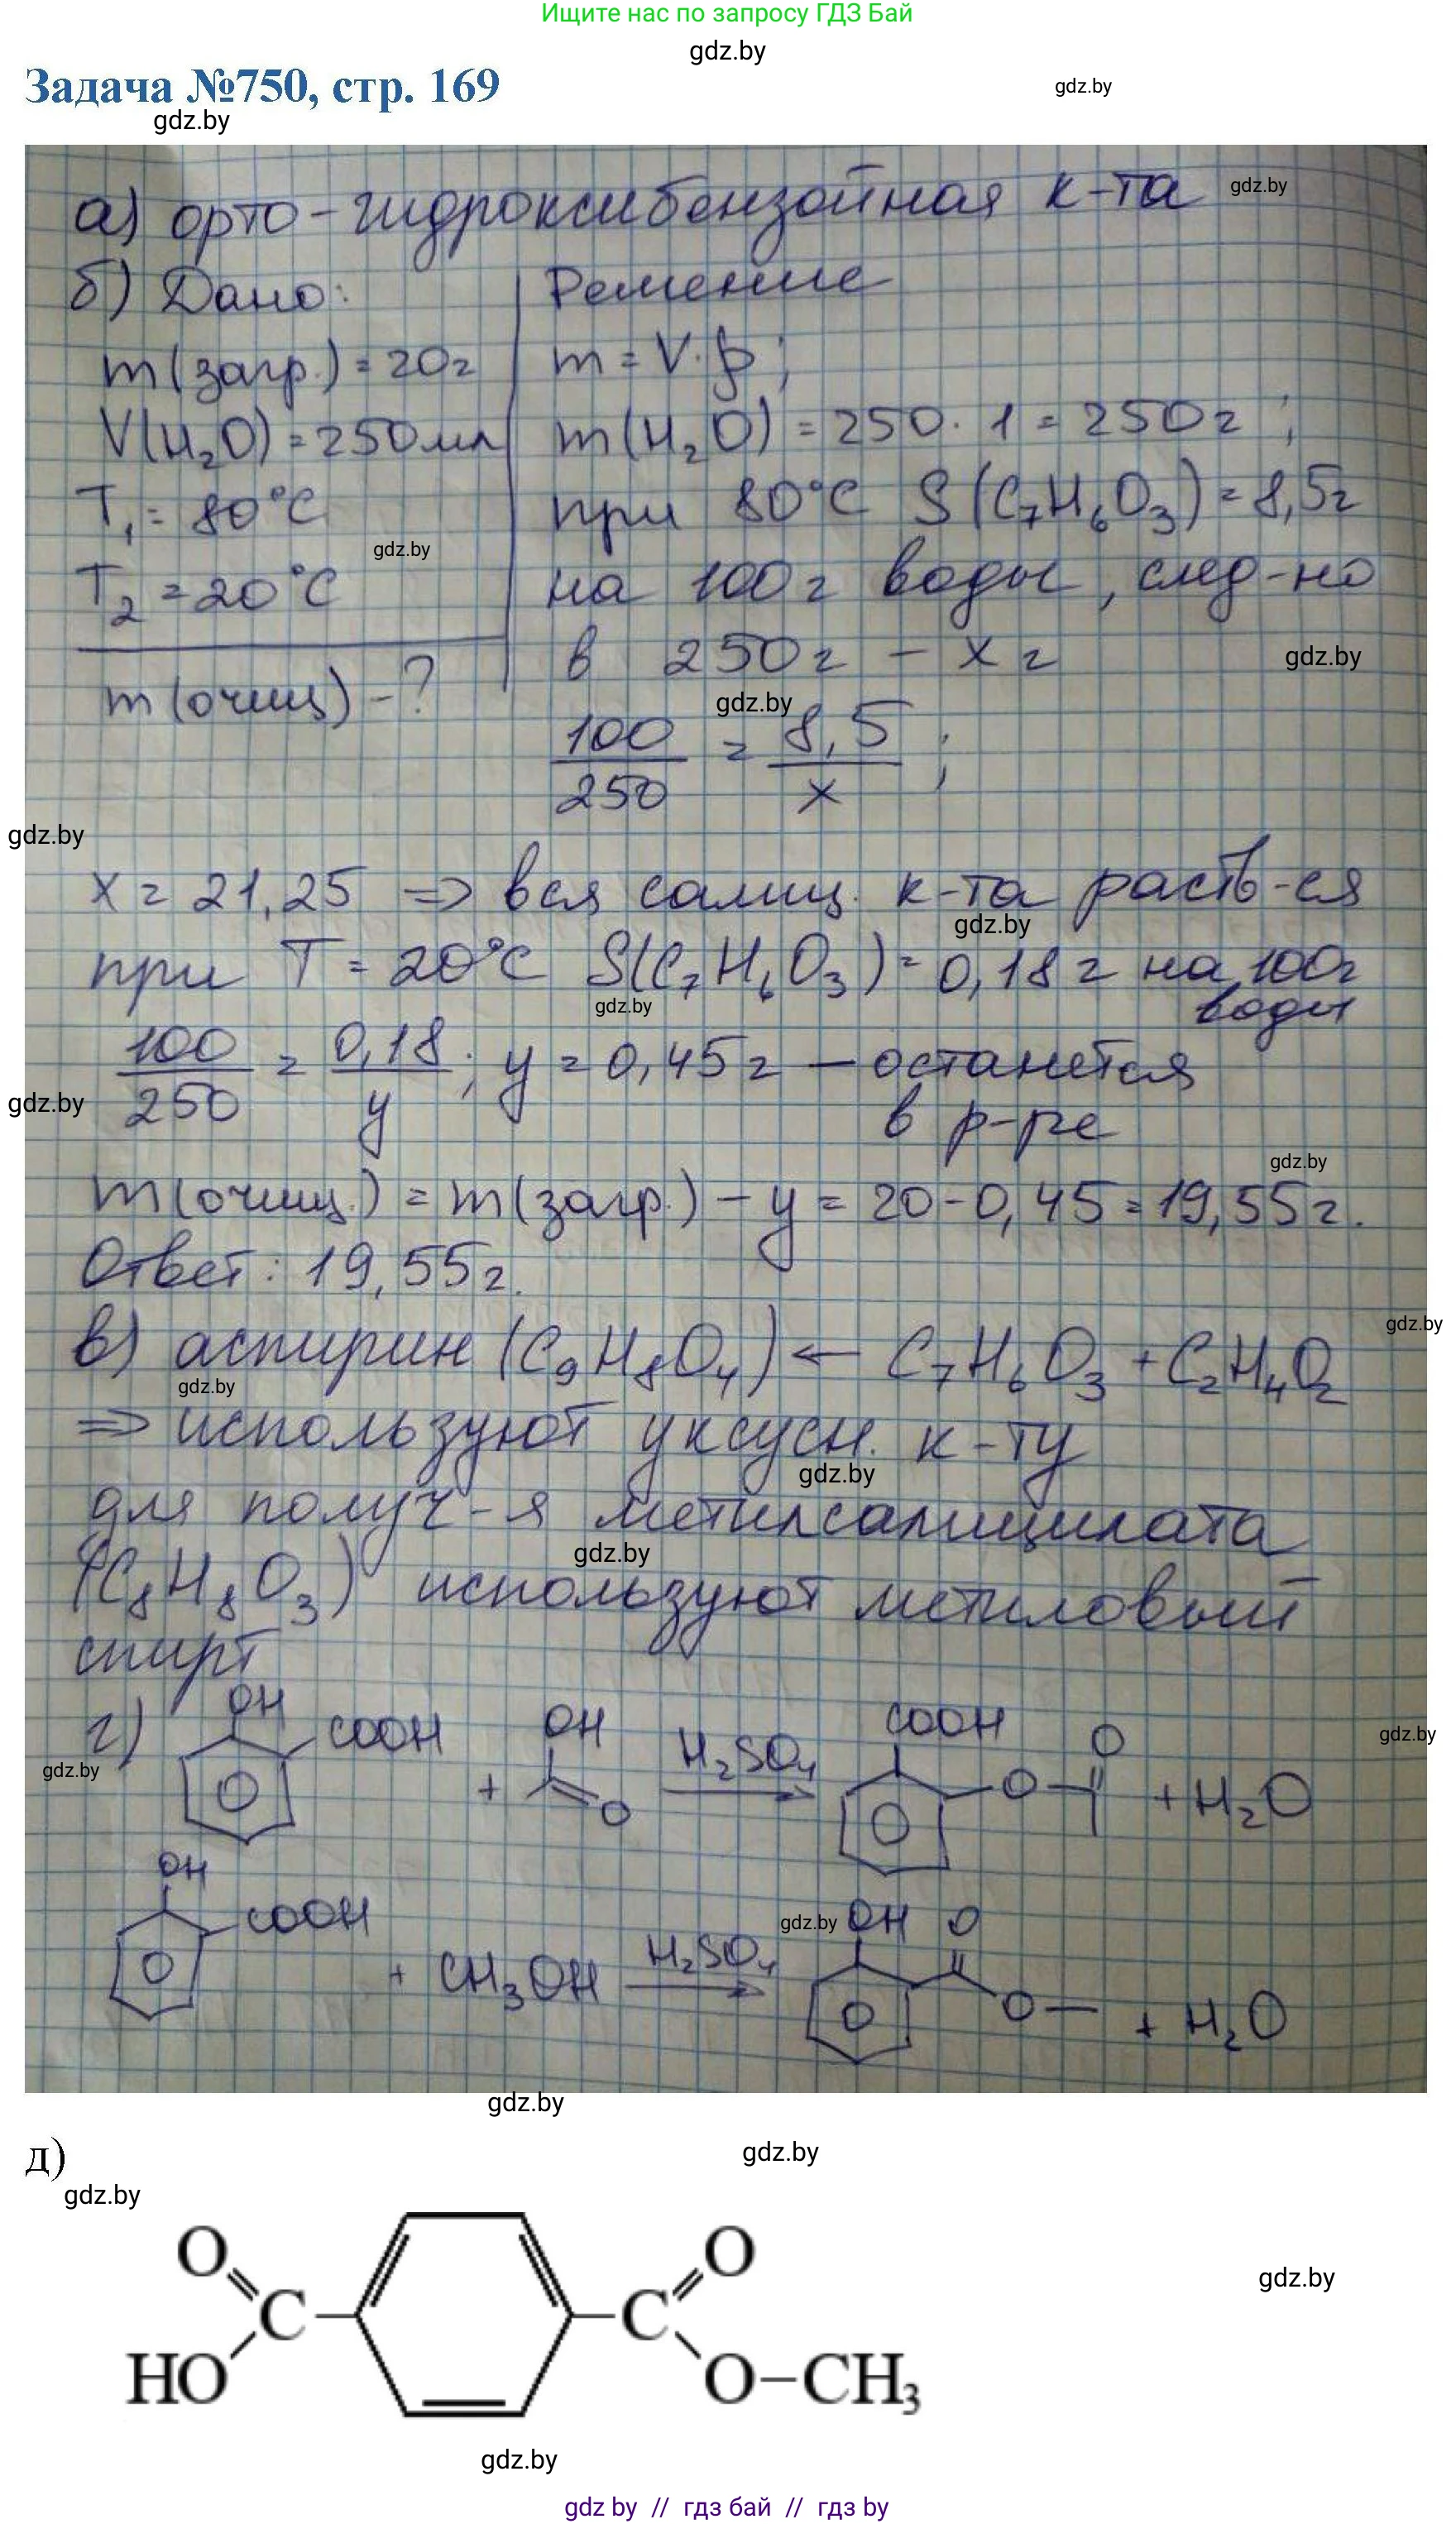 Ищите нас по запросу ГДЗ Бай
gdz.by
Задача №750, стр. 169
gdz.by
gdz.by
а) орто-гидроксибензойная к-та
gdz.by
б) Дано:
Решение
m(загр.) = 20г
m = V·ρ;
V(H₂O) = 250мл
m(H₂O) = 250·1 = 250г;
T₁ = 80°C
при 80°C S(C₇H₆O₃) = 8,5г
gdz.by
T₂ = 20°C
на 100г воды, след-но
в 250г – x г
gdz.by
m(очищ) – ?
gdz.by
100/250 = 8,5/x;
gdz.by
x = 21,25 => вся салиц. к-та раств-ся
gdz.by
при T = 20°C S(C₇H₆O₃) = 0,18г на 100г
воды
gdz.by
100/250 = 0,18/y; y = 0,45г – останется
в р-ре
gdz.by
gdz.by
m(очищ.) = m(загр.) – y = 20-0,45 = 19,55г.
Ответ: 19,55г.
gdz.by
в) аспирин (C₉H₈O₄) ← C₇H₆O₃ + C₂H₄O₂
gdz.by
=> используют уксусн. к-ту
gdz.by
для получ-я метилсалицилата
gdz.by
(C₈H₈O₃) используют метиловый
спирт
г) OH COOH + OH O H₂SO₄ → COOH O O + H₂O
gdz.by
gdz.by
OH COOH + CH₃OH H₂SO₄ → OH O O + H₂O
gdz.by
gdz.by
д)
gdz.by
gdz.by
O O
gdz.by
C C
HO O–CH₃
gdz.by
gdz by // гдз бай // гдз by